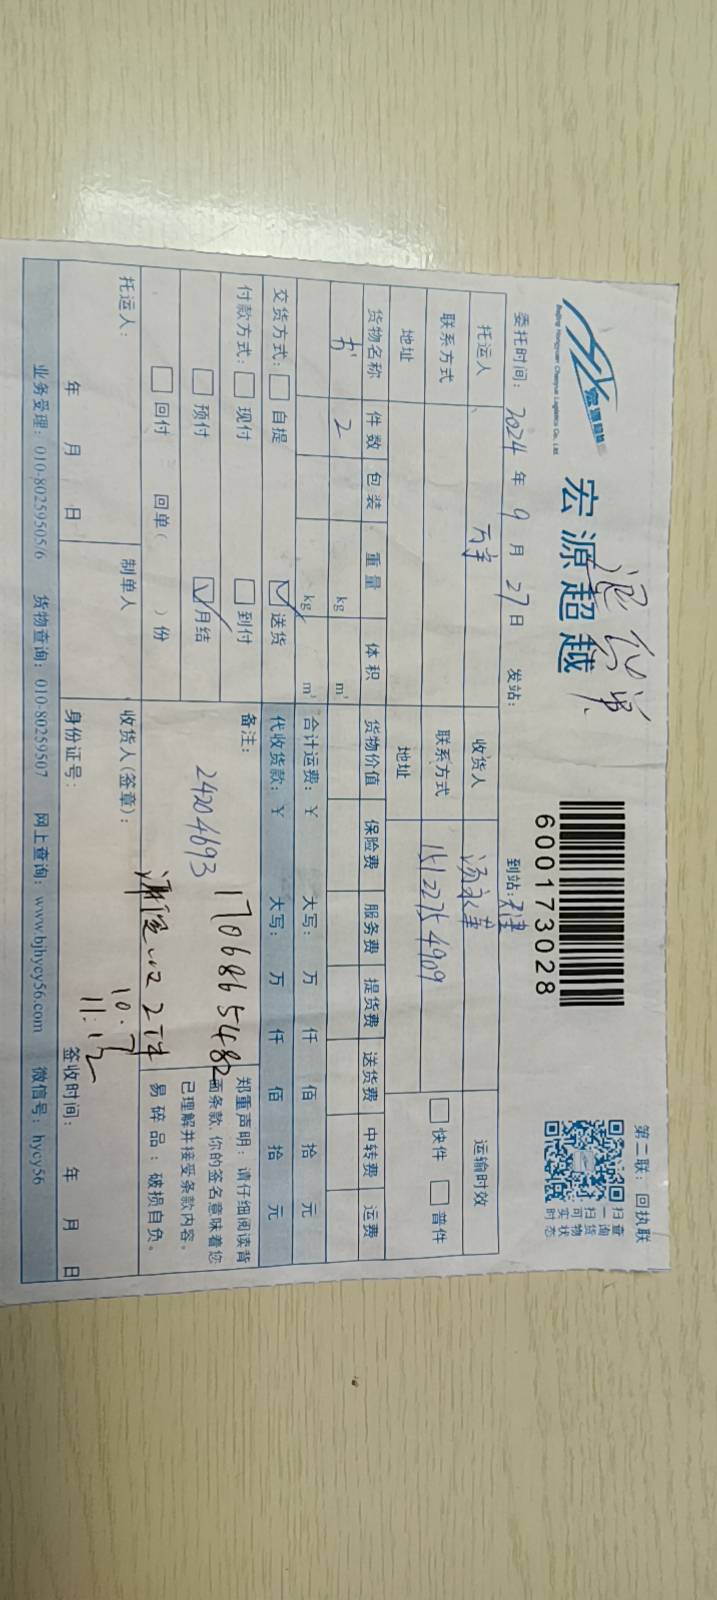 宏源超越
Beijing Hongyuan Chaoyue Logistics Co., Ltd.
600173028
第二联：回执联
扫一扫可实时
查询货物状态
委托时间：2024年9月27日 发站： 到站：天津
托运人 万宇 收货人 汤永革 运输时效
联系方式 联系方式 15122754909 快件 普件
地址 地址
货物名称 件数 包装 重量 体积 货物价值 保险费 服务费 提货费 送货费 中转费 运费
书 2 kg m³
kg m³ 合计运费：￥ 大写： 万 仟 佰 拾 元
交货方式： 自提 送货 代收货款：￥ 大写： 万 仟 佰 拾 元
付款方式： 现付 到付 备注：
17068665482
预付 月结
2404693
回付 回单（ ）份
郑重声明：请仔细阅读背
面条款，你的签名意味着您
已理解并接受条款内容。
易碎品：破损自负。
托运人： 制单人 收货人(签章)：
2件
10.7
11:12
年 月 日 身份证号： 签收时间： 年 月 日
业务受理：010-80259505/6 货物查询：010-80259507 网上查询：www.bjhycy56.com 微信号：hycy56